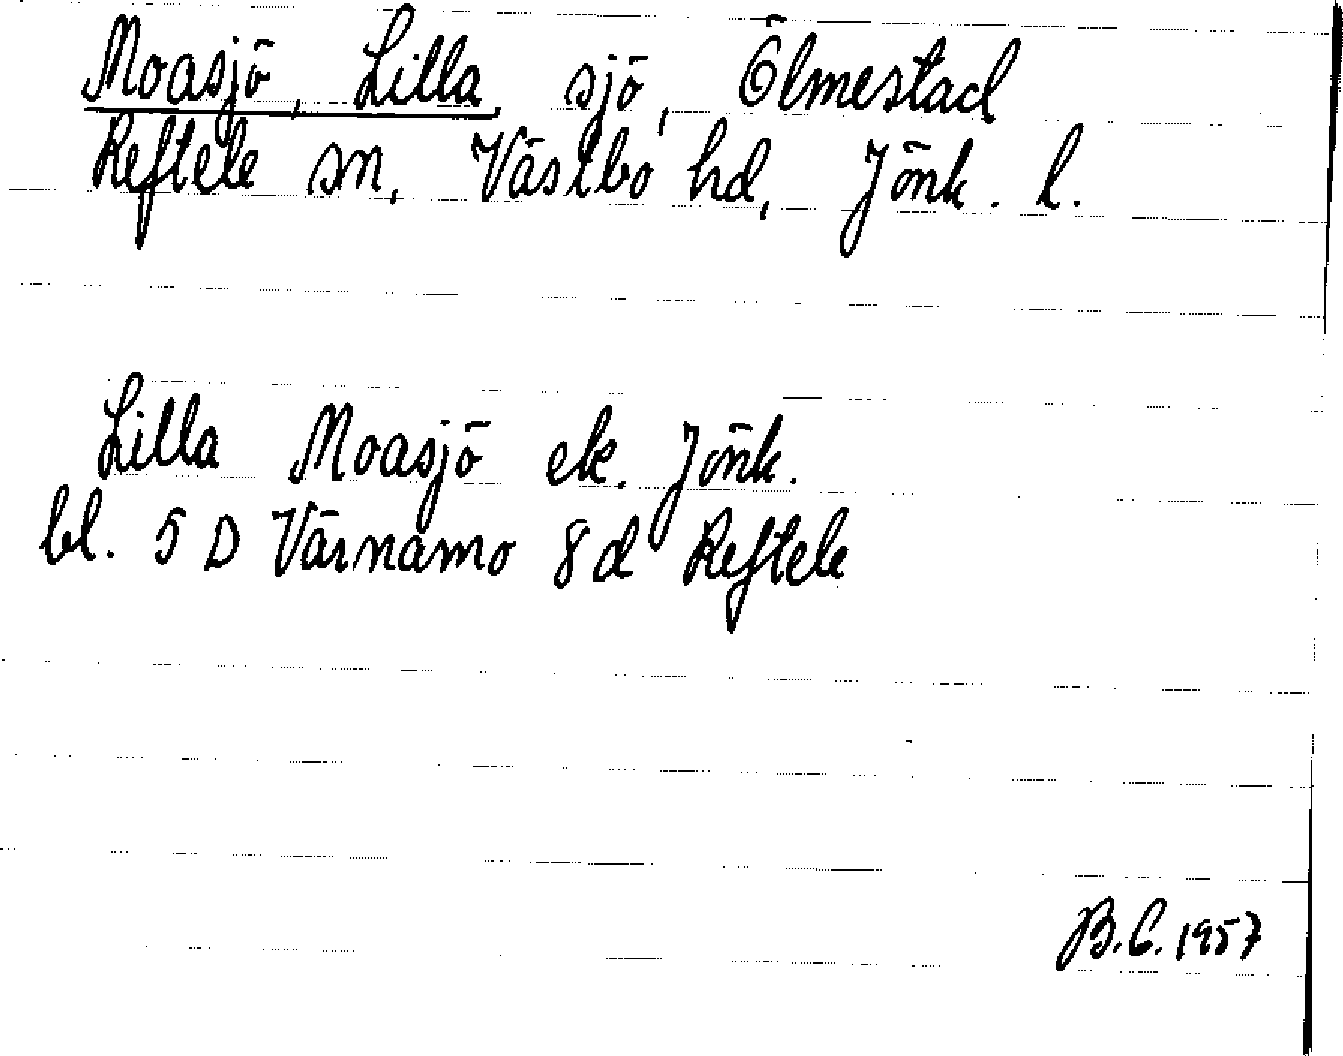 Moasjö, Lilla, sjö, Ölmestad
Reftele sn, Västbo hd, Jönk. l.
Lilla Moasjö ek. Jönk.
bl. 5 D Värnamo 8 d Reftele
B.C. 1957